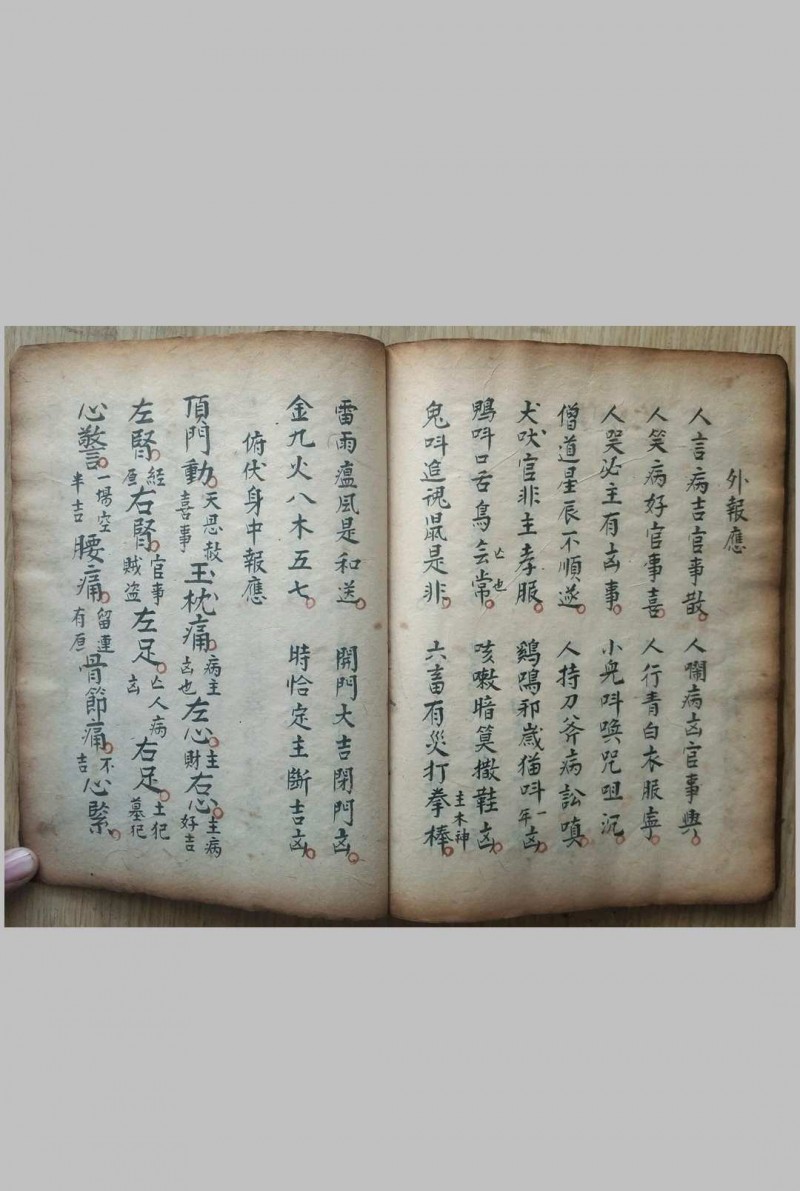 外報應
人言病吉官事散 人鬧病凶官事興
人笑病好官事喜 人行青白衣服寧
人哭必主有凶事 小兒呌喚咒咀沉
僧道星辰不順遂 人持刀斧病訟嗔
犬吠官非主孝服 鷄鳴邪歲猫呌一年凶
鴨呌口舌鳥亡也常 咳嗽暗箕撒鞋凶
鬼呌追魂鼠是非 六畜有災打拳棒主木神
雷雨瘟風是和送 開門大吉閉門凶
金九火八木五七 時恰定主斷吉凶
俯伏身中報應
頂門動天恩赦喜事玉枕痛病主凶也左心主財右心主病好吉
左腎經右腎官事賊盜左足亡人病凶右足土犯墓犯
心驚一場空半吉腰痛留連有骨節痛不吉心緊